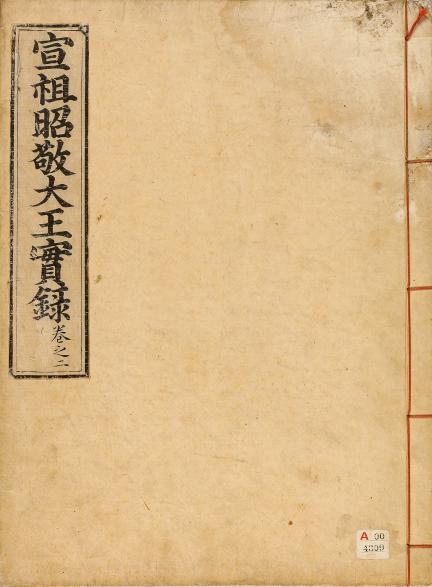 宣祖昭敬大王實錄
卷之二
A 00
4309